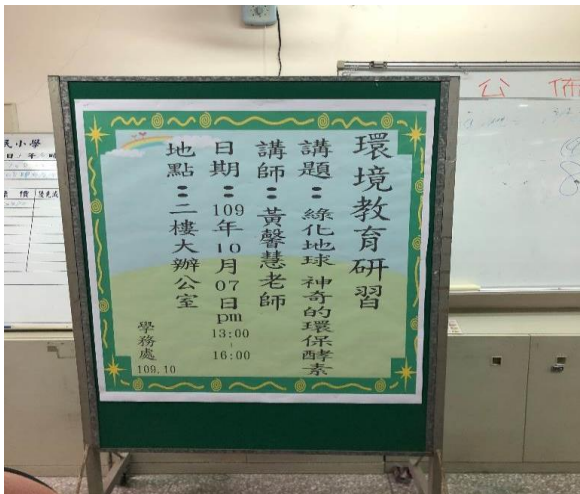 環境教育研習
講題：綠化地球 神奇的環保酵素
講師：黃馨慧老師
日期：109年10月07日pm
13:00
|
16:00
地點：二樓大辦公室
學務處
109.10
公佈
小學